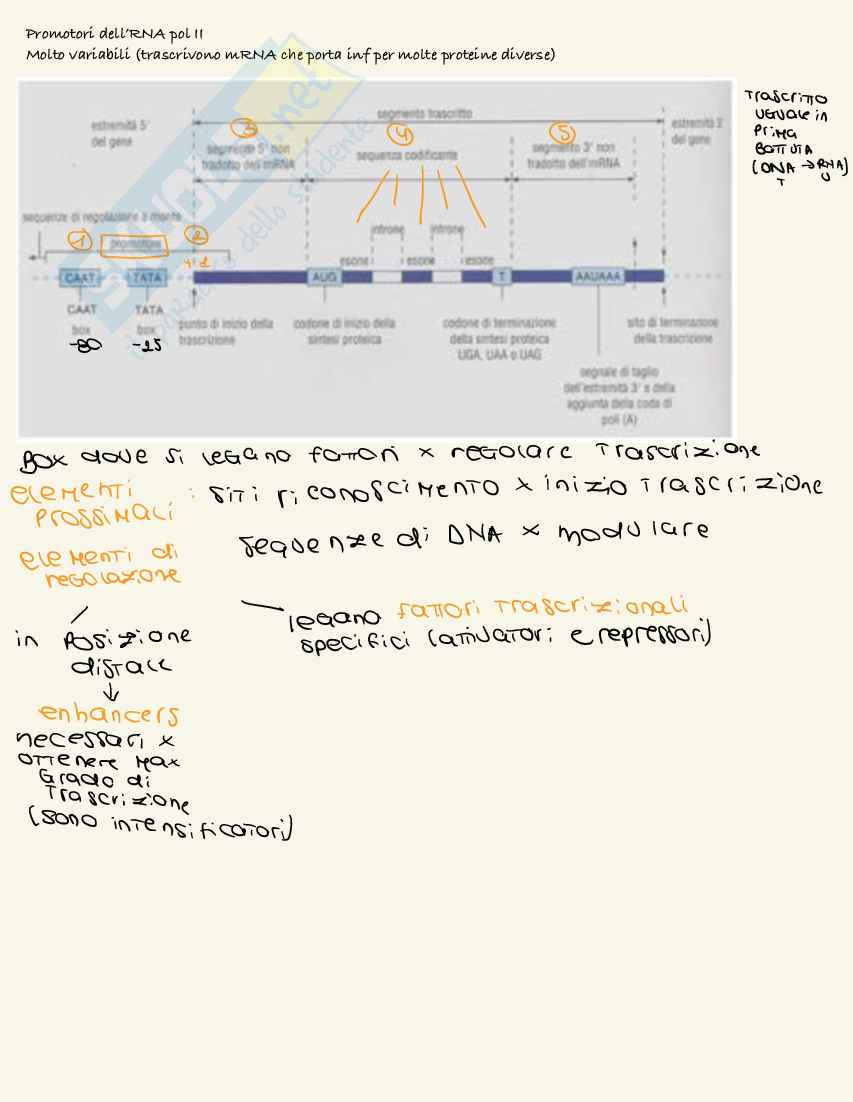 Promotori dell'RNA pol II
Molto variabili (trascrivono mRNA che porta inf per molte proteine diverse)
segmento trascritto
estremità 5'
del gene
3
segmento 5' non
tradotto dell'mRNA
4
sequenza codificante
5
segmento 3' non
tradotto dell'mRNA
estremità
del gene
Trascritto
uguale in
prima
battuta
(DNA → RNA)
T U
sequenze di regolazione a monte
1
promotore
2
+1
introne introne
esone esone esone
CAAT TATA AUG T AAUAAA
CAAT
box
-80
TATA
box
-25
punto di inizio della
trascrizione
codone di inizio della
sintesi proteica
codone di terminazione
della sintesi proteica
UGA, UAA o UAG
sito di terminazione
della trascrizione
segnale di taglio
dell'estremità 3' e della
aggiunta della coda di
poli (A)
Box dove si legano fattori x regolare trascrizione
elementi prossimali : siti riconoscimento x inizio trascrizione
elementi di regolazione sequenze di DNA x modulare
legano fattori trascrizionali
specifici (attivatori e repressori)
in posizione
distale
↓
enhancers
necessari x
ottenere max
grado di
trascrizione
(sono intensificatori)